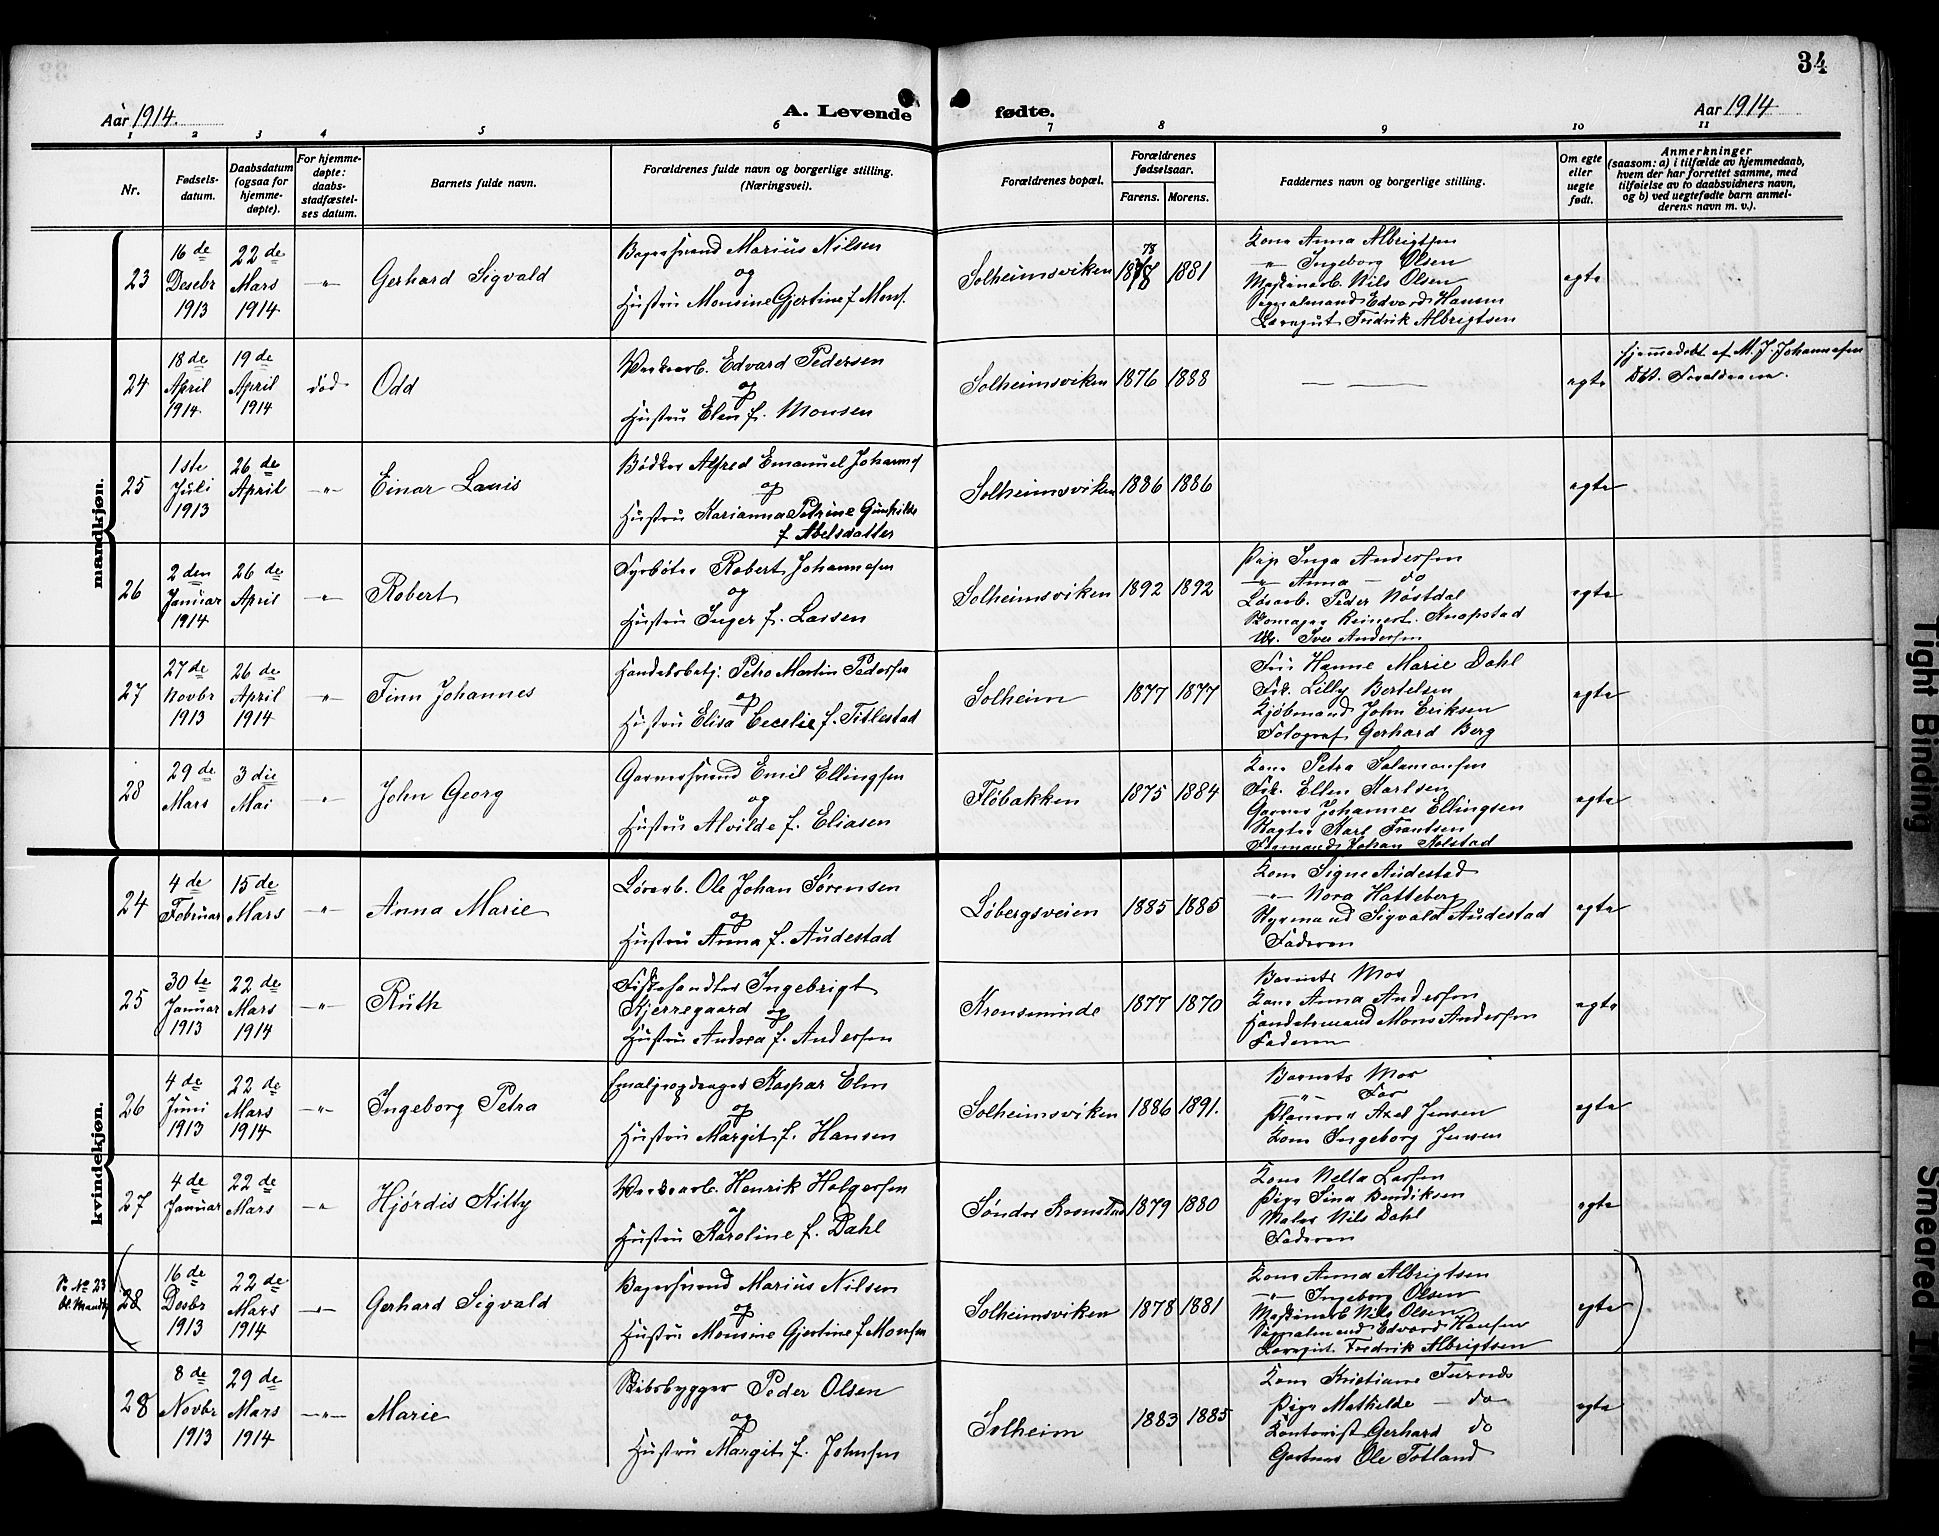 34
Aar 1914.
A. Levende fødte.
Aar 1914
1 2 3 4 5 6 7 8 9 10 11
Nr.
Fødsels-
datum.
Daabsdatum
(ogsaa for
hjemme-
døpte).
For hjemme-
døpte:
daabs-
stadfæstel-
ses datum.
Barnets fulde navn.
Forældrenes fulde navn og borgerlige stilling.
(Næringsvei).
Forældrenes bopæl.
Forældrenes
fødselsaar.
Farens. Morens.
Faddernes navn og borgerlige stilling.
Om egte
eller
uegte
født.
Anmerkninger
(saasom: a) i tilfælde av hjemmedaab,
hvem der har forrettet samme, med
tilføielse av to daabsvidners navn,
og b) ved uegtefødte barn anmel-
derens navn m. v.).
mandkjøn.
23
16 de
Desebr
1913
22 de
Mars
1914
-"-
Gerhard Sigvald
Bagersvend Marius Nilsen
og
Hustru Monsine Gjertine f. Mons.
Solheimsviken
78
1878
1881
Kone Anna Albrigtsen
-"- Ingeborg Olsen
Maskinarb. Nils Olsen
Signalmand Edvard Hansen
Læregut Fredrik Albrigtsen
egte
24
18 de
April
1914
19 de
April
1914
død
Odd
Verkarb. Edvard Pedersen
og
Hustru Elen f. Monsen
Solheimsviken
1876
1888
— —
egte
Hjemmedøbt af M. J. Johannesen
Dbv. Forældrene.
25
1ste
Juli
1913
26 de
April
-"-
Einar Lauis
Bødker Alfred Emanuel Johannes
og
Hustru Karianna Petrine Gunhilde
f. Abelsdatter
Solheimsviken
1886
1886
egte
26
2 den
Januar
1914
26 de
April
-"-
Robert
Fyrbøter Robert Johannesen
og
Hustru Inger f. Larsen
Solheimsviken
1892
1892
Pige Inga Andersen
-"- Anna — do
Løsarb. Peder Nøstdal
Reinert Knapstad
Iver Andersen
egte
27
27 de
Novbr
1913
26 de
April
1914
-"-
Finn Johannes
Handelsbetj. Petro Martin Pedersen
og
Hustru Elisa Cecelie f. Titlestad
Solheim
1877
1877
Fru Hanne Marie Dahl
Frk. Lilly Bertelsen
Kjøbmand John Eriksen
Fotograf Gerhard Berg
egte
28
29 de
Mars
3 die
Mai
-"-
John Georg
Garversvend Emil Ellingsen
og
Hustru Alvilde f. Eliasen
Fløbakken
1875
1884
Kone Petra Salamonsen
Frk. Ellen Karlsen
Garver Johannes Ellingsen
Karl Frantsen
Johan Kolstad
egte
kvindekjøn.
24
4 de
Februar
15 de
Mars
-"-
Anna Marie
Løsarb. Ole Johan Sørensen
og
Hustru Anna f. Audestad
Løbergsveien
1885
1885
Kone Signe Audestad
-"- Nora Hatteberg
Styrmand Sigvald Audestad
Faderen
egte
25
30 te
Januar
1913
22 de
Mars
1914
-"-
Ruth
Fiskehandler Ingebrigt
Kjerregaard og
Hustru Andrea f. Andersen
Kronsminde
1877
1870
Barnets Mor
Kone Anna Andersen
Handelsmand Mons Andersen
Faderen
egte
26
4 de
Juni
1913
22 de
Mars
1914
-"-
Ingeborg Petra
Kaspar Elm
og
Hustru Margit f. Hansen
Solheimsviken
1886
1891.
Barnets Mor
-"- Far
Axel Jensen
Kone Ingeborg Jensen
egte
27
4 de
Januar
22 de
Mars
-"-
Hjørdis Kitty
Verkarb. Henrik Holgersen
og
Hustru Karoline f. Dahl
Søndre Kronstad
1879
1880
Kone Nella Larsen
Pige Sina Bendiksen
Maler Nils Dahl
Faderen
egte
Se No 23
bl. Mandkj.
28
16 de
Desbr
1913
22 de
Mars
1914
-"-
Gerhard Sigvald
Bagersvend Marius Nilsen
og
Hustru Monsine Gjertine f. Monsen
Solheimsviken
1878
1881
Kone Anna Albrigtsen
-"- Ingeborg Olsen
Maskinarb Nils Olsen
Signalmand Edvard Hansen
Læregut. Fredrik Albrigtsen
egte
28
8 de
Novbr
1913
29 de
Mars
1914
-"-
Marie
Skibsbygger Peder Olsen
og
Hustru Margit f. Johnsen
Solheim
1883
1885
Kone Kristiane Furnes
Pige Mathilde — do
Kontorist Gerhard do
Gartner Ole Totland
egte
Tight Binding
Smeared Ink